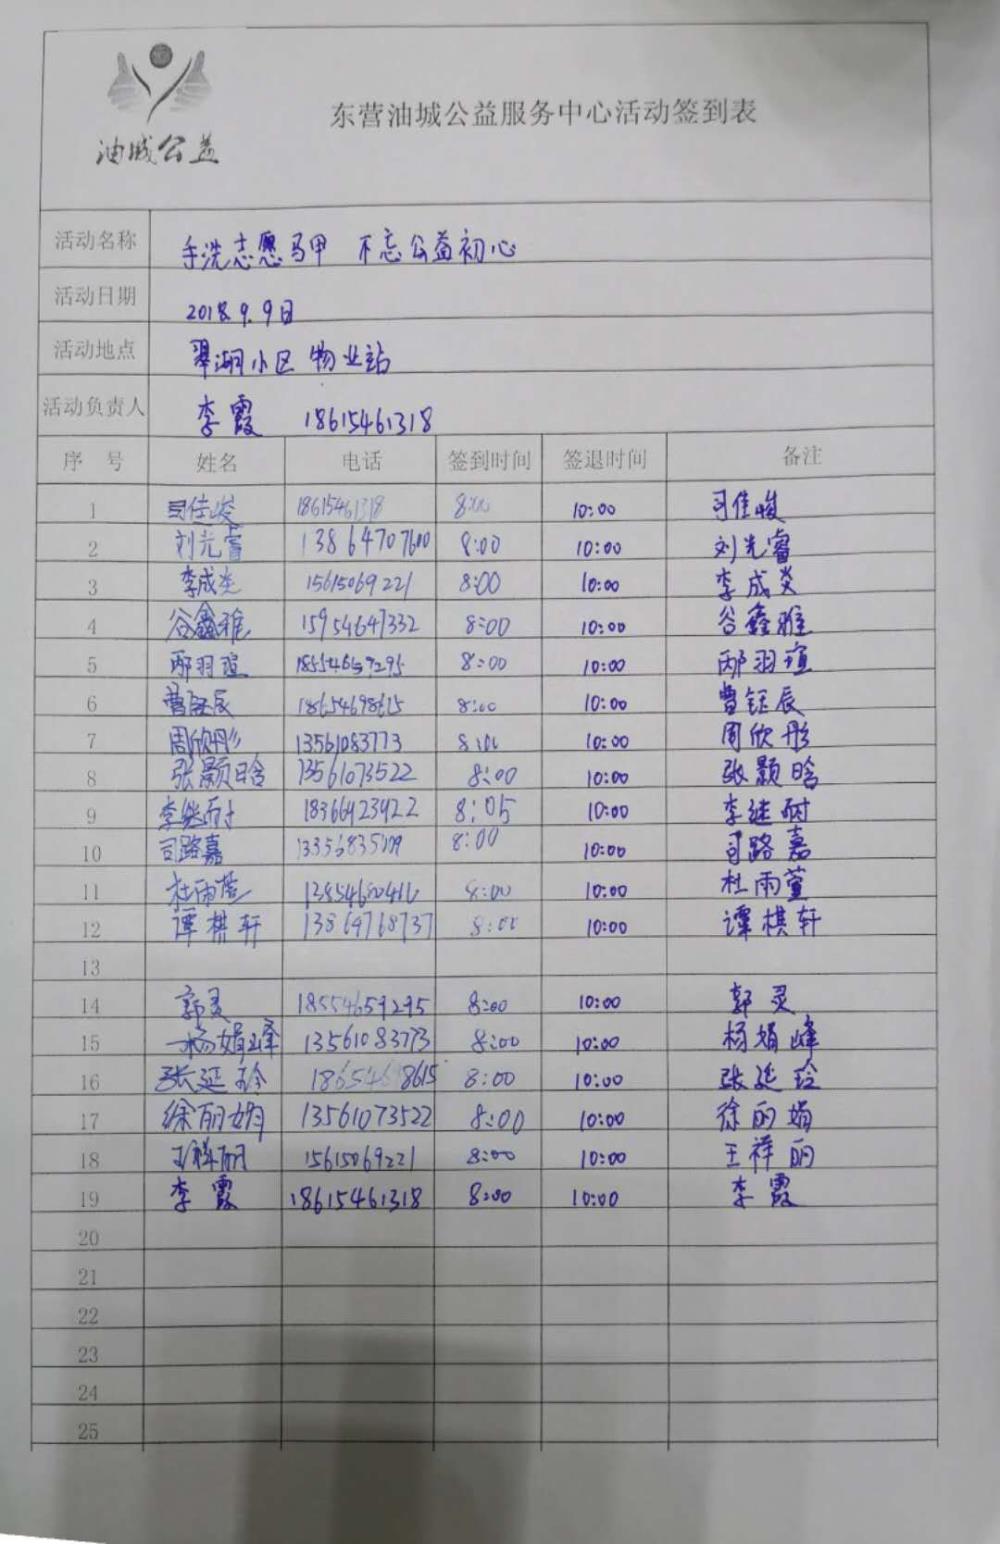 油城公益
东营油城公益服务中心活动签到表
活动名称 手洗志愿马甲 不忘公益初心
活动日期 2018.9.9日
活动地点 翠湖小区物业站
活动负责人 李霞 18615461318
序号 姓名 电话 签到时间 签退时间 备注
1 司佳峻 18615461318 8:00 10:00 司佳峻
2 刘光睿 13864707600 8:00 10:00 刘光睿
3 李成炎 15615069221 8:00 10:00 李成炎
4 谷鑫雅 15954647332 8:00 10:00 谷鑫雅
5 邴羽瑄 18554659295 8:00 10:00 邴羽瑄
6 曹钰辰 18654698615 8:00 10:00 曹钰辰
7 周欣彤 13561083773 8:00 10:00 周欣彤
8 张颢晗 13561073522 8:00 10:00 张颢晗
9 李继耐 18366923922 8:05 10:00 李继耐
10 司路嘉 8:00 10:00 司路嘉
11 杜雨萱 8:00 10:00 杜雨萱
12 谭棋轩 13864768737 8:00 10:00 谭棋轩
13
14 郭灵 18554659295 8:00 10:00 郭灵
15 杨娟峰 13561083773 8:00 10:00 杨娟峰
16 张延玲 18654698615 8:00 10:00 张延玲
17 徐丽娟 13561073522 8:00 10:00 徐丽娟
18 王祥丽 15615069221 8:00 10:00 王祥丽
19 李霞 18615461318 8:00 10:00 李霞
20
21
22
23
24
25